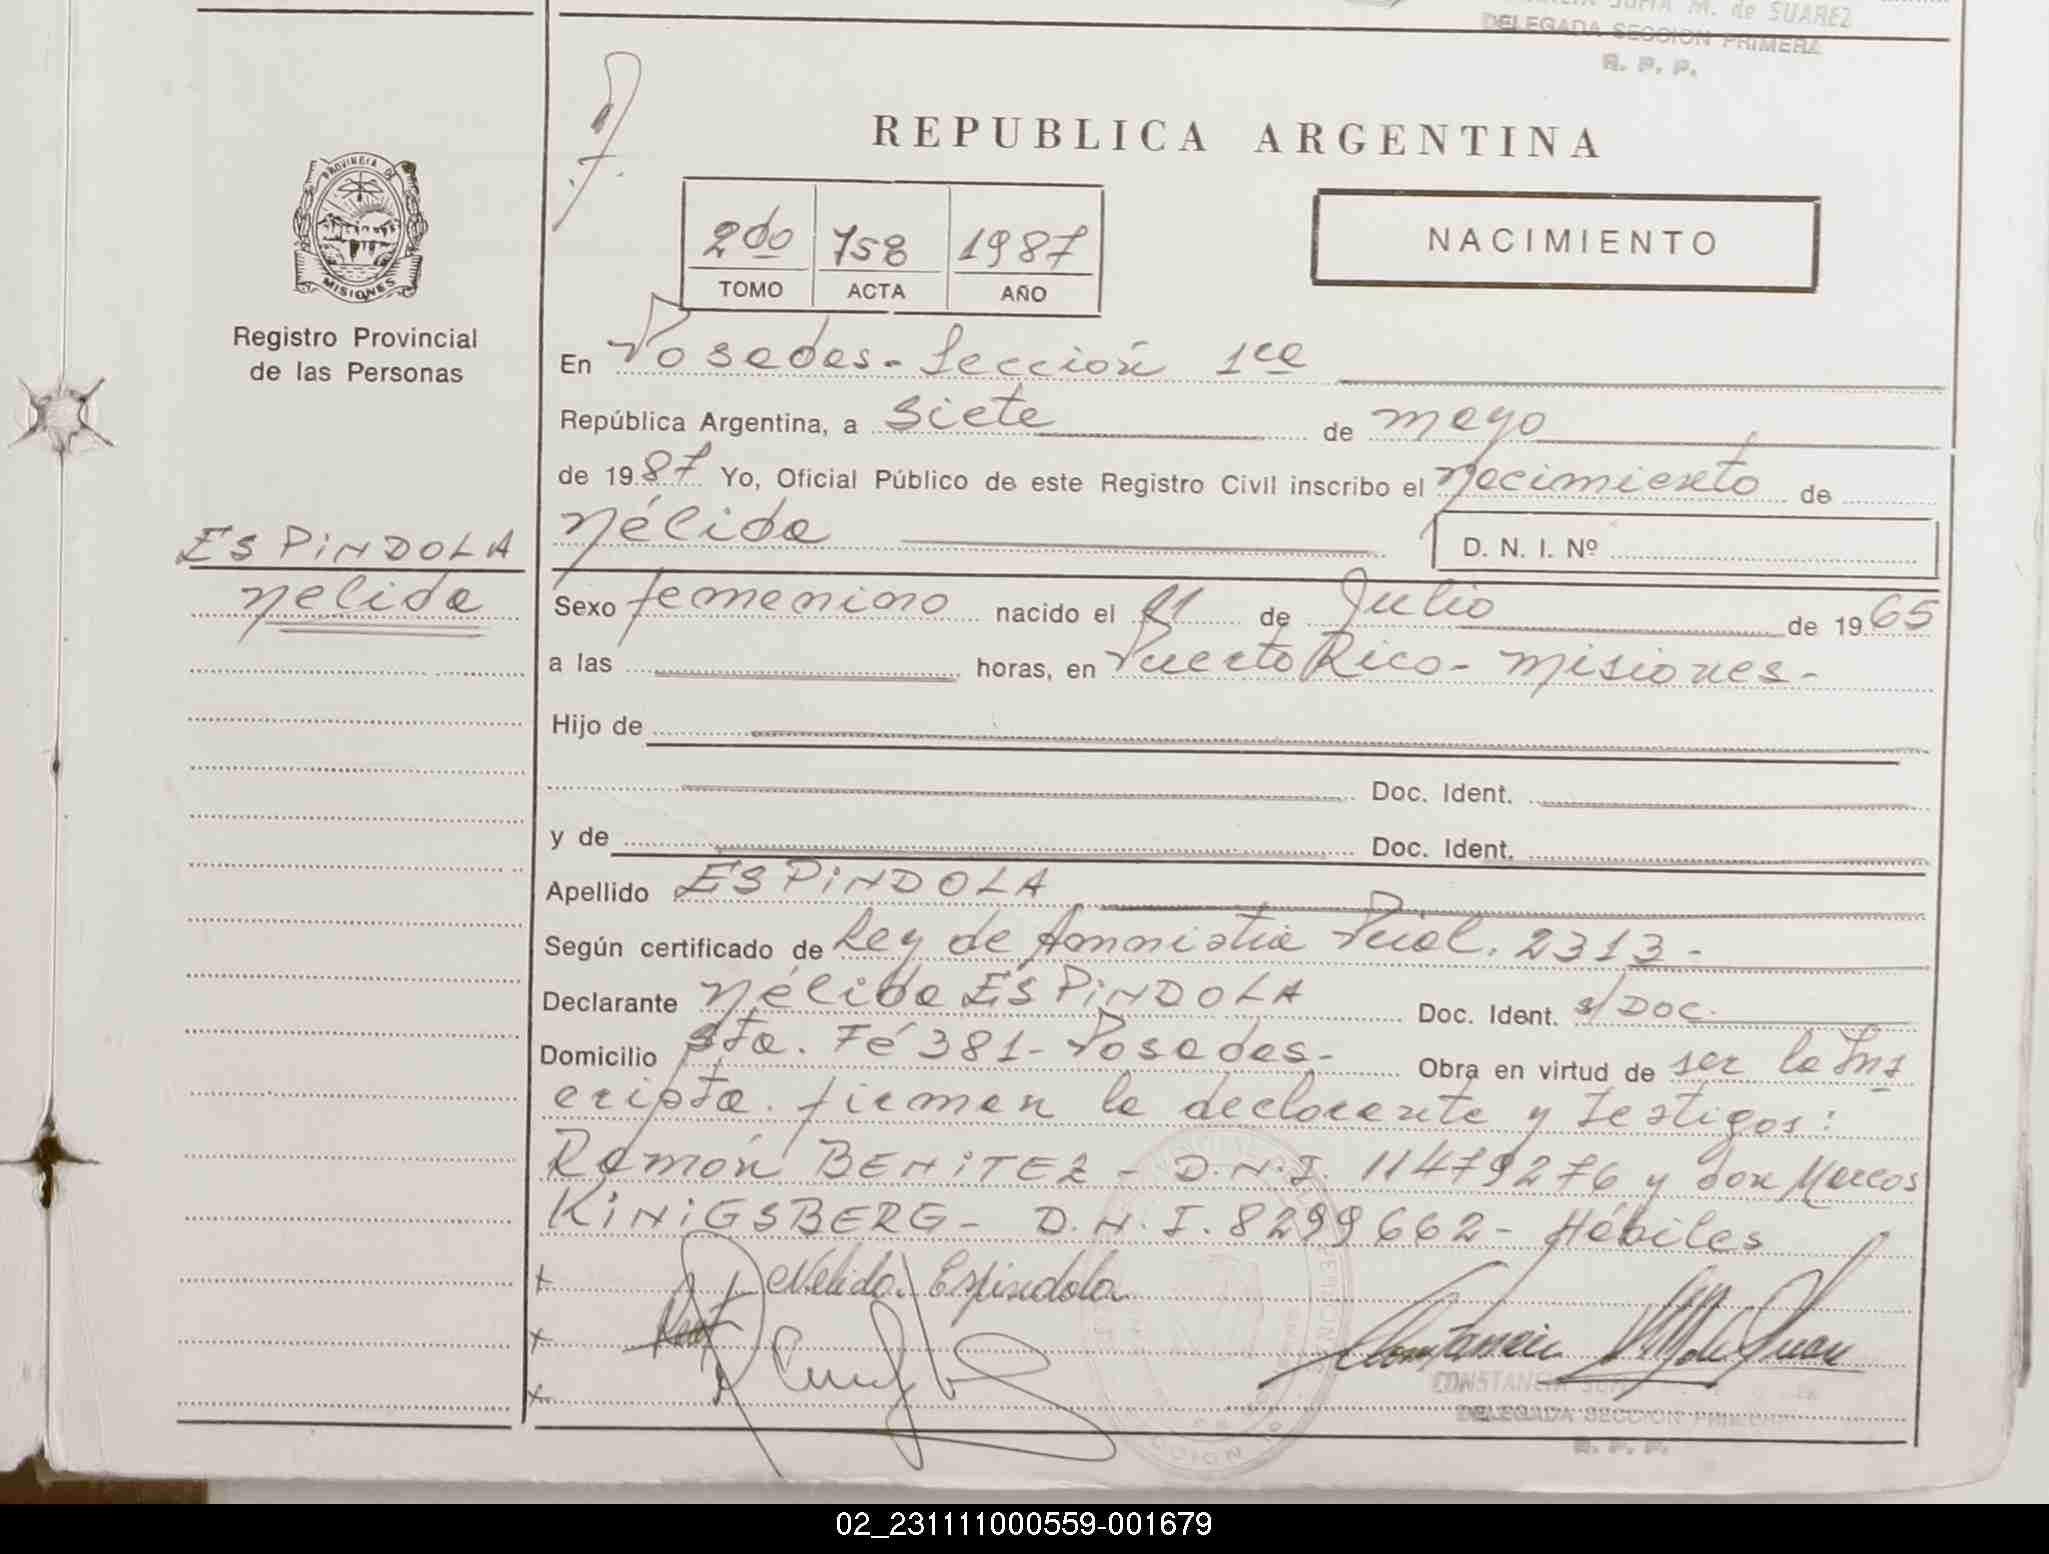 M. de SUAREZ
DELEGADA SECCION PRIMERA
R. P. P.
REPUBLICA ARGENTINA
PROVINCIA DE
MISIONES
Registro Provincial
de las Personas
2do 758 1987
TOMO ACTA AÑO
NACIMIENTO
En Posadas - Sección 1ra
República Argentina, a siete de mayo
de 1987 Yo, Oficial Público de este Registro Civil inscribo el nacimiento de
Nélida D. N. I. Nº
ESPINDOLA
Nelida
Sexo femenino nacido el 21 de Julio de 1965
a las horas, en Puerto Rico - Misiones -
Hijo de
Doc. Ident.
y de Doc. Ident.
Apellido ESPINDOLA
Según certificado de Ley de Amnistia Pcial. 2313 -
Declarante Nélida ESPINDOLA Doc. Ident. s/DOC.
Domicilio Sta. Fé 381 - Posadas - Obra en virtud de ser la Ins
cripta. firman la declarante y testigos:
Ramón BENITEZ - D.N.I. 11479276 y don Marcos
KINIGSBERG - D.N.I. 8299662 - Hábiles
Nelida Espindola
CONSTANCIA
DELEGADA SECCION PRIMERA
R. P. P.
02_231111000559-001679